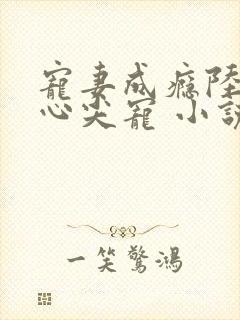 寵妻成癮陸
心尖寵 小說
一笑驚鴻